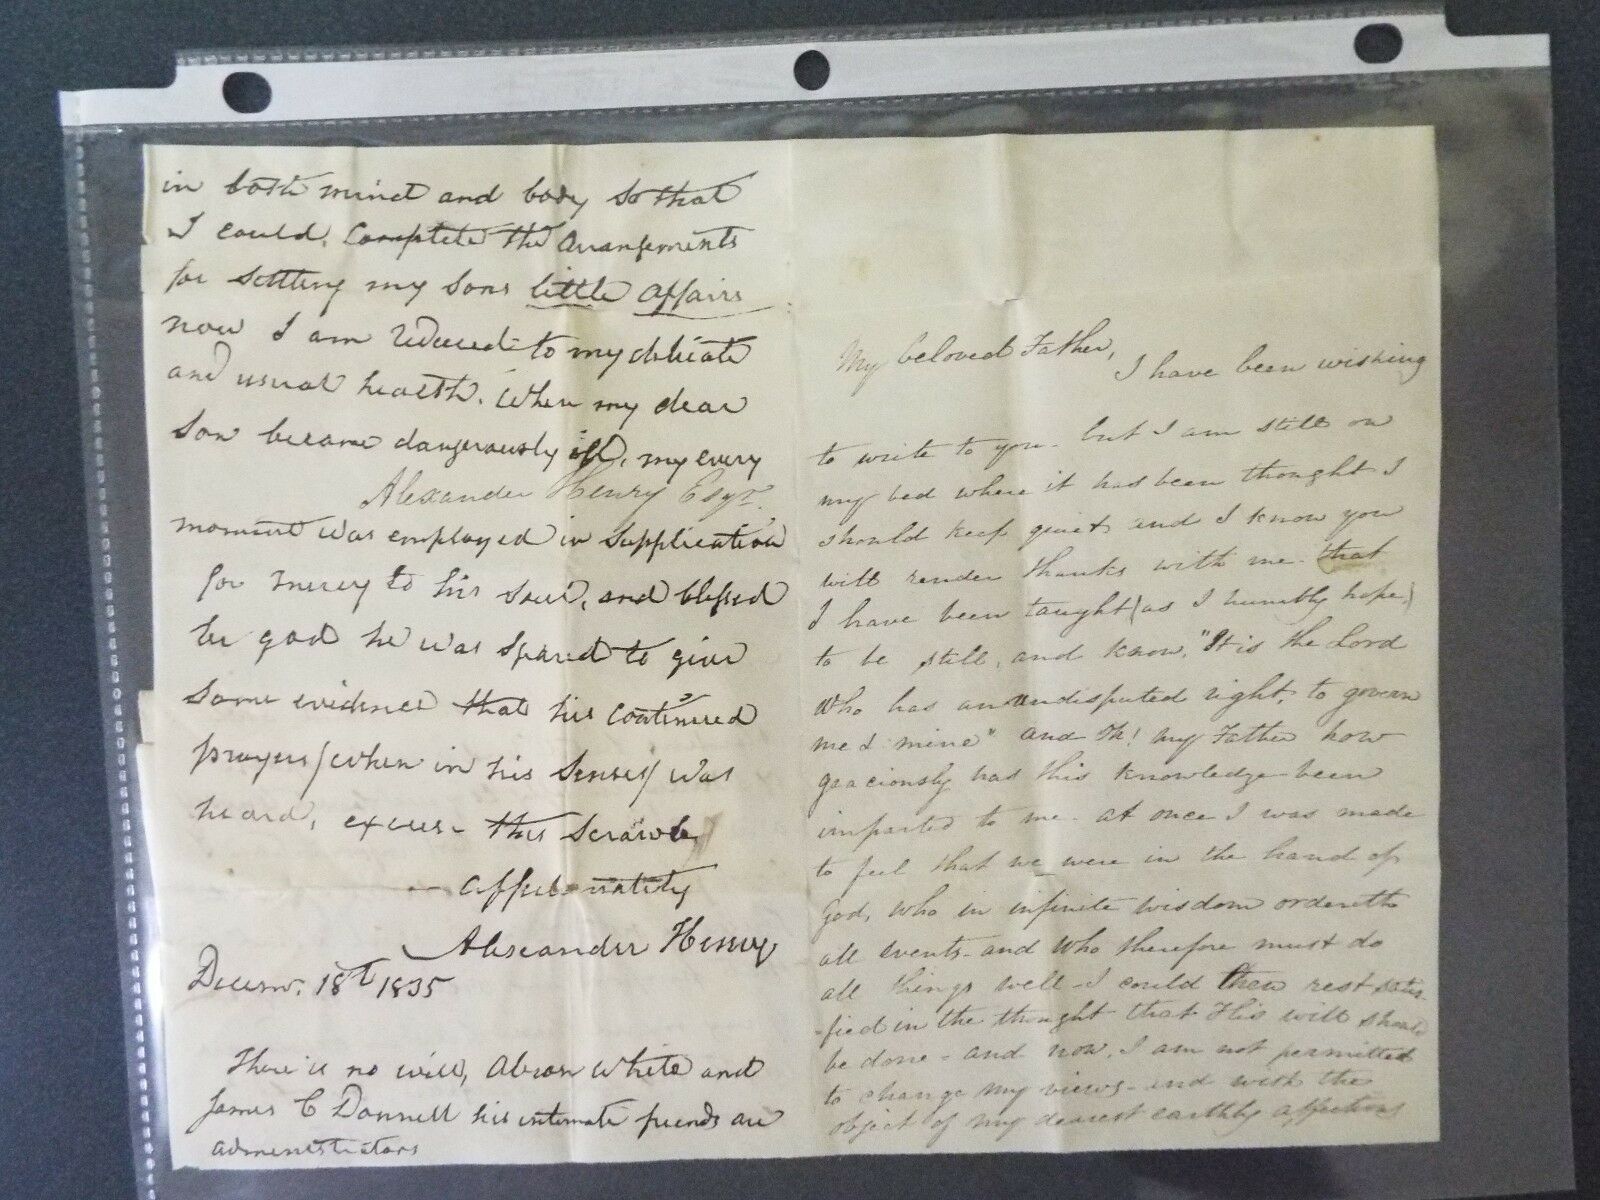 in both mind and body so that
I could, complete the arrangements
for settling my sons little affairs
now I am reduced to my delicate
and usual health. When my dear
son became dangerously ill, my every
Alexander Henry Esqr.
moment was employed in supplication
for mercy to his soul, and blessed
be god he was spared to give
some evidence that his continued
prayers / when in his senses / was
heard, excuse this scrawl
— affectionately
Alexander Henry
Decem. 18th 1835
There is no will, Abron White and
James C Donnell his intimate friends are
administrators
My beloved Father,
I have been wishing
to write to you - but I am still on
my bed where it has been thought I
should keep quiet and I know you
will render thanks with me - that
I have been taught (as I humbly hope)
to be still, and know, "It is the Lord
who has an undisputed right, to govern
me & mine" and Oh! my Father how
graciously has this knowledge been
imparted to me - at once I was made
to feel that we were in the hand of
God, who in infinite wisdom ordereth
all events - and who therefore must do
all things well - I could then rest satis-
-fied in the thought that His will should
be done - and now, I am not permitted
to change my views - and with the
object of my dearest earthly affections